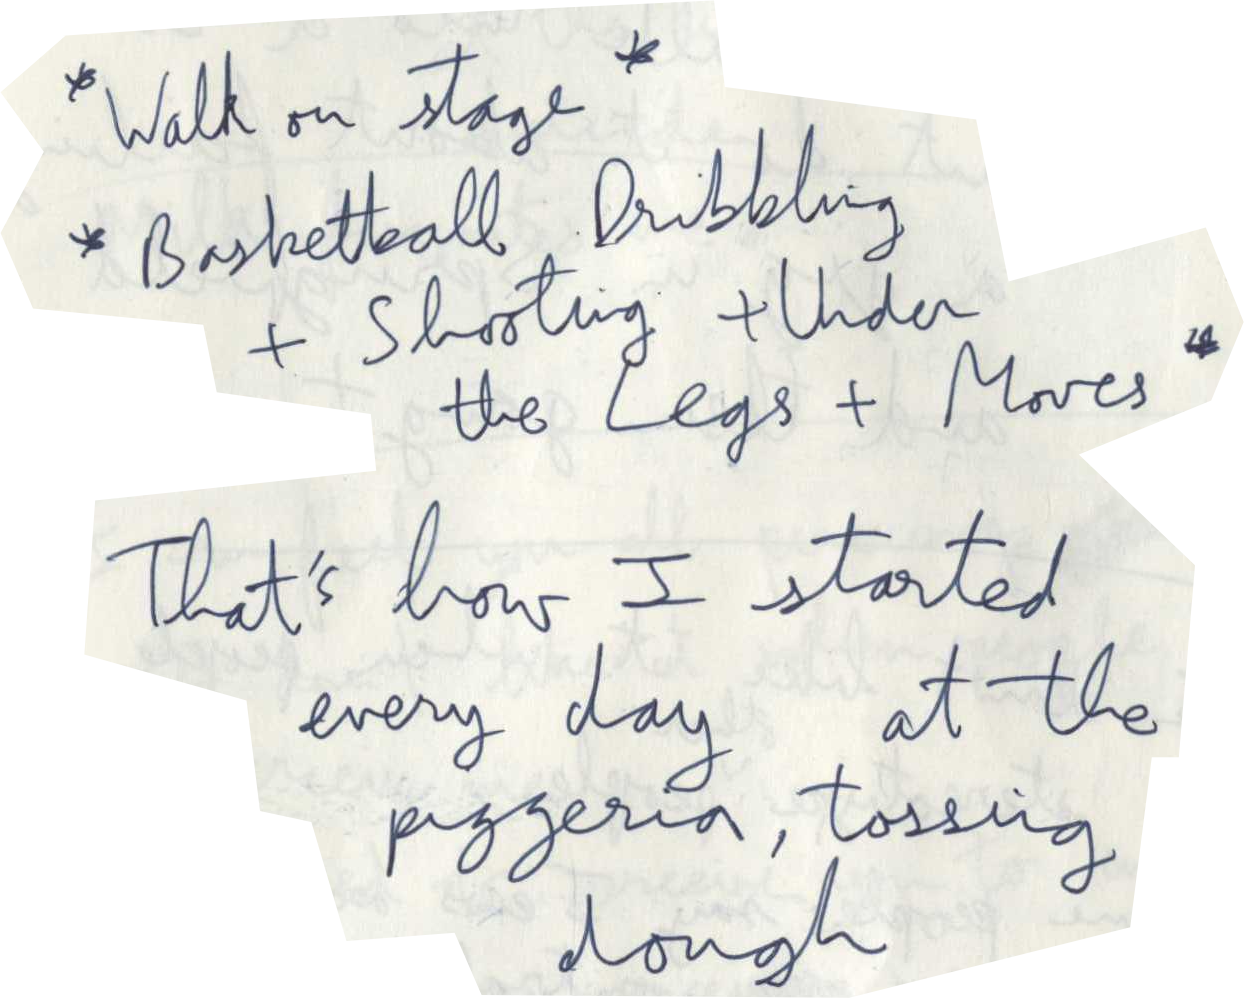 * Walk on stage *
* Basketball Dribbling
+ Shooting + Under
the Legs + Moves *
That's how I started
every day at the
pizzeria, tossing
dough